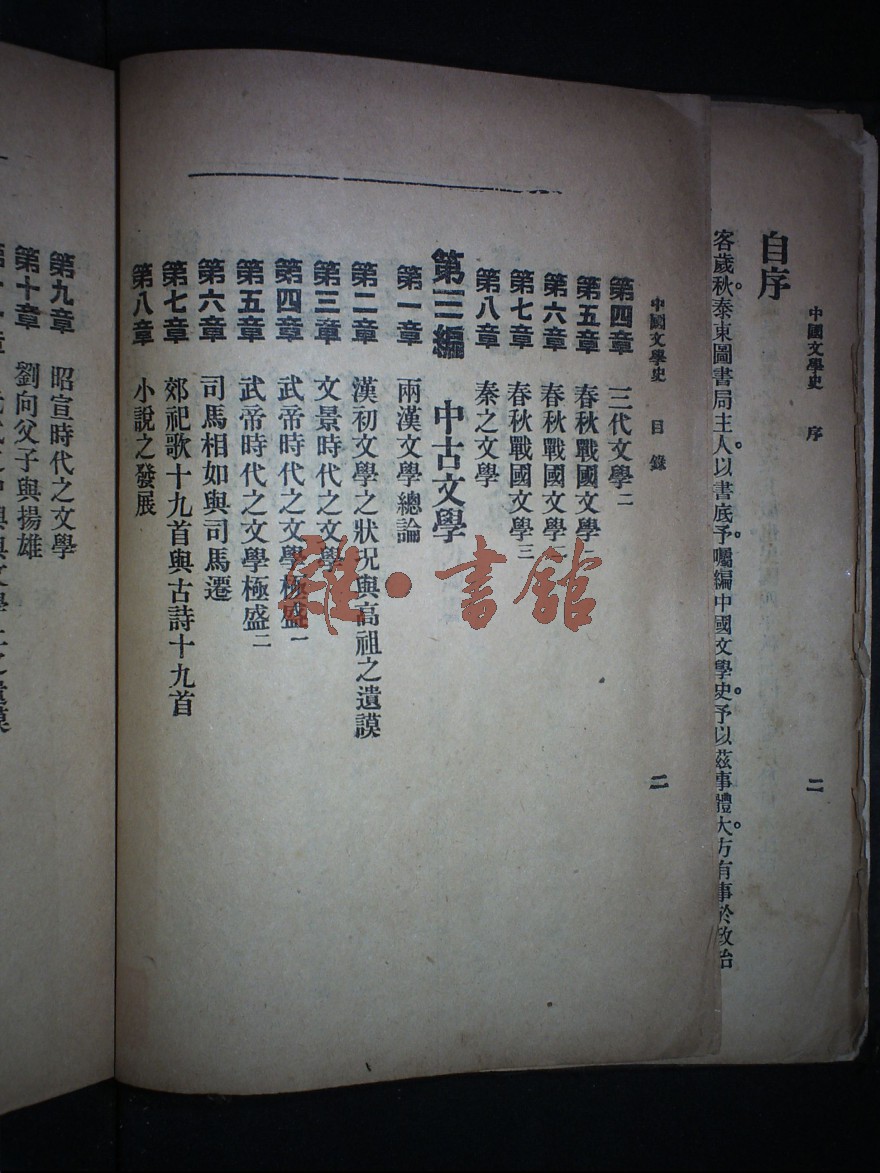 中國文學史 序 二
自序
客歲秋。泰東圖書局主人。以書底予。囑編中國文學史。予以茲事體大。方有事於政治
中國文學史 目錄 二
第四章 三代文學二
第五章 春秋戰國文學一
第六章 春秋戰國文學二
第七章 春秋戰國文學三
第八章 秦之文學
第三編 中古文學
第一章 兩漢文學總論
第二章 漢初文學之狀況與高祖之遺謨
第三章 文景時代之文學
第四章 武帝時代之文學極盛一
第五章 武帝時代之文學極盛二
第六章 司馬相如與司馬遷
第七章 郊祀歌十九首與古詩十九首
第八章 小說之發展
第九章 昭宣時代之文學
第十章 劉向父子與揚雄
雜·書館